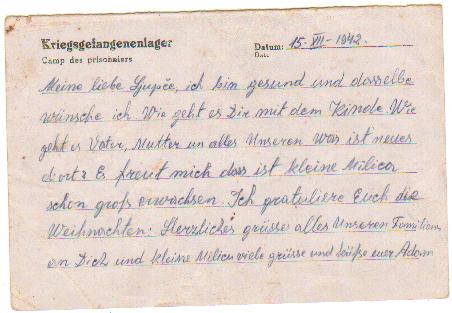 Kriegsgefangenenlager
Camp des prisoneiers
Datum: 15-XII-1942.
Dat.
Meine liebe Ljupče, ich bin gesund und dasselbe
wünsche ich. Wie geht es Dir mit dem Kinde. Wie
geht es Vater, Mutter un alles Unseren Was ist neues
dort? Es freut mich dass ist kleine Milica
schon groß erwachsen. Ich gratuliere Euch die
Weihnachten. Herzliches grüsse alles Unseren Familien,
an Dich und kleine Milicu viele grüsse und küße euer Adam